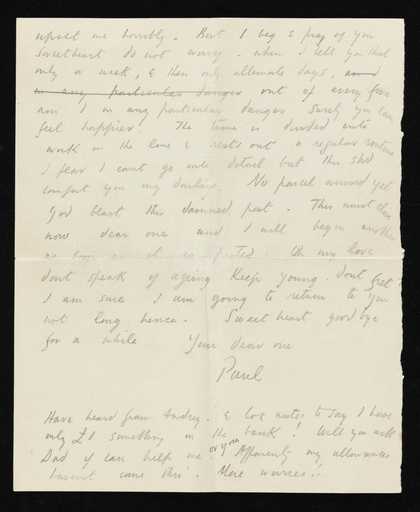 upset me horribly. But I beg & pray of you
sweetheart do not worry. when I tell you that
only a week, & then only alternate days,
in any particular danger out of every four
am I in any particular danger surely you can
feel happier. The time is divided into
work on the line & rests out a regular routine
I fear I cant go into detail but this shd
comfort you my darling. No parcel arrived yet
God blast this damned post. This must
now dear one and I will begin another
Oh my love
dont speak of ageing Keep young. Dont fret
I am sure I am going to return to you
not long hence. Sweetheart goodbye
for a while Your dear one
Paul
Have heard from Audrey. & Cox writes to say I have
only £1 something in the bank! Will you ask
Dad if can help me or you Apparently my allowances
havent come thro'. More worries!!